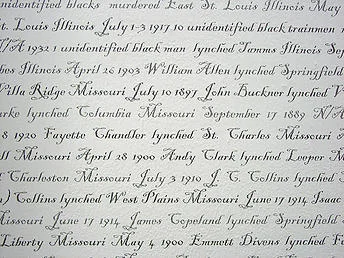 unidentified blacks murdered East St. Louis Illinois May
St. Louis Illinois July 1-3 1917 10 unidentified black trainmen
N/A 1932 1 unidentified black man lynched Tamms Illinois Sep
Illinois April 26 1903 William Allen lynched Springfield
Villa Ridge Missouri July 10 1897 John Buckner lynched V
lynched Columbia Missouri September 17 1889 N/A
8 1920 Fayette Chandler lynched St. Charles Missouri A
ll Missouri April 28 1900 Andy Clark lynched Leeper M
Charleston Missouri July 3 1910 J. C. Collins lynched
) Collins lynched West Plains Missouri June 17 1914 Isaac
Missouri June 17 1914 James Copeland lynched Springfield
Liberty Missouri May 4 1900 Emmett Divens lynched F